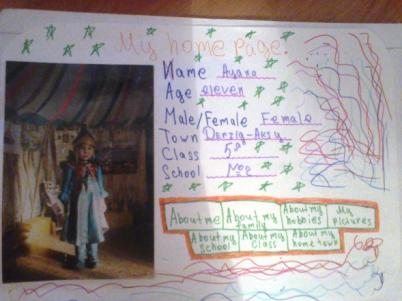 My home page.
Name Ayana
Age eleven
Male/Female Female
Town Derzig-Aksy
Class 5
School №2
About me
About my family
About my hobbies
My pictures
About my school
About my class
About my home town